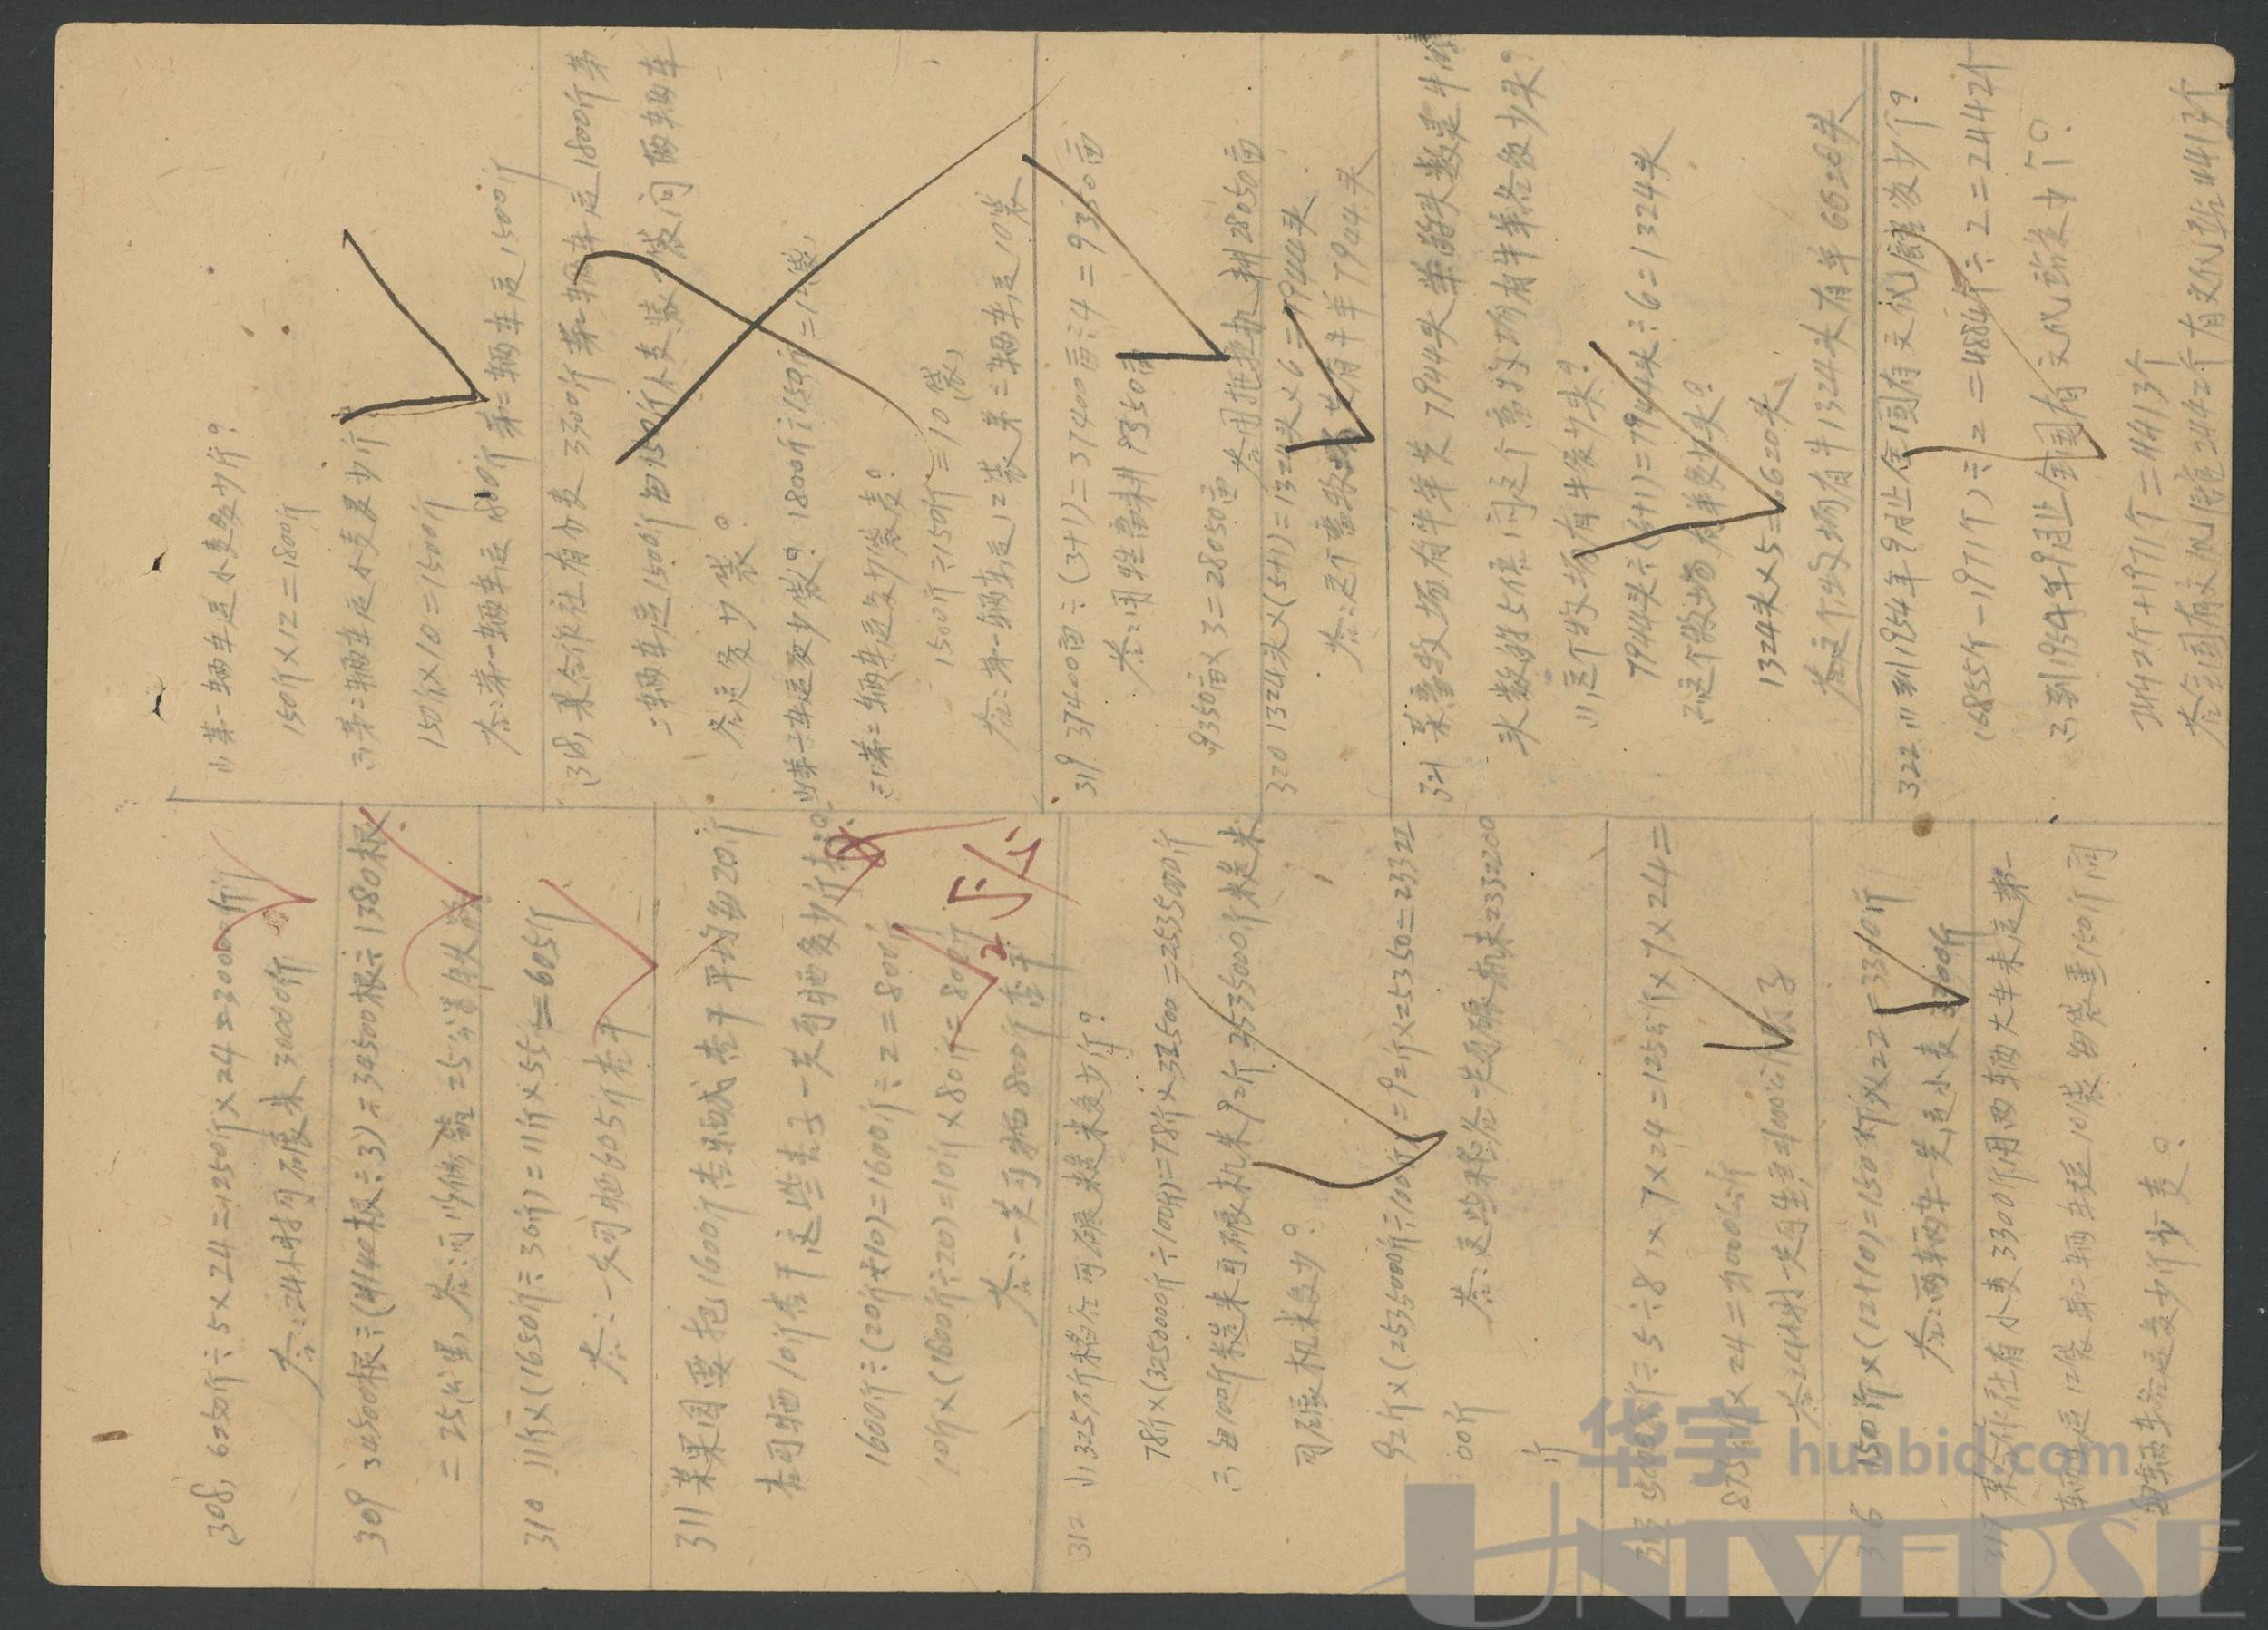 308, 6250斤÷5×24=1250斤×24=30000斤
答:24小时可碾米30000斤
309 34500根÷(4140根÷3)=34500根÷1380根
=25公里, 答:可以修筑25公里
310 11斤×(1650斤÷30斤)=11斤×55=605斤
答:一共可晒605斤杏干
311 某果园要把1600斤杏晒成杏干平均每20斤
杏可晒10斤杏干这些杏子一共可晒多少斤杏
1600斤÷(20斤÷10)=1600斤÷2=800斤
10斤×(1600÷20)=10斤×80斤=800斤
答:一共可晒800斤杏干
312 (1)325万斤稻谷可碾糙米多少斤?
78斤×(3250000斤÷100斤)=78斤×32500=2535000斤
(2)每100斤糙米可碾机米92斤2535000斤糙米
可碾机米多少?
92斤×(2535000斤÷100斤)=92斤×25350=23322
00斤
答:这些稻谷一共可碾机米2332200
斤
÷5÷8×7×24=125公斤×7×24=
875公斤×24=21000公斤
答24小时一共可生产21000公斤
316 150斤×(12+10)=150斤×22=3300斤
答:两辆车一共运小麦3300斤
317 某合作社有小麦3300斤用两辆大车来运第一
辆车运12袋第二辆车运10袋每袋重150斤问
每辆车各运多少斤小麦?
(1)第一辆车运小麦多少斤?
150斤×12=1800斤
(2)第二辆车运小麦多少斤
150斤×10=1500斤
答:第一辆车运1800斤第二辆车运1500斤
318, 某合作社有小麦3300斤第一辆车运1800斤第
二辆车运1500斤每150斤小麦装一袋问两辆车
各运多少袋?
(1)第一车运多少袋?1800斤÷150斤=12袋,
(2)第二辆车运多少袋麦?
1500斤÷150斤=10袋,
答:第一辆车运12袋第二辆车运10袋
319 37400亩÷(3+1)=37400亩÷4=9350亩
答:用牲畜耕9350亩
9350亩×3=28050亩 答用拖拉机耕28050亩
320 1324头×(5+1)=1324头×6=7944头
答:这个畜牧场共有牛羊7944头
321 某畜牧场有牛羊共7944头羊的头数是牛的
头数的5倍问这个畜牧场有牛羊各多少头?
(1)这个牧场有牛多少头?
7944头÷(5+1)=7944头÷6=1324头
(2)这个牧场有羊多少头?
1324头×5=6620头
答这个牧场有牛1324头有羊6620头
322 (1)到1954年9月止全国有文化馆多少个?
(6855个-1971个)÷2=4884个÷2=2442个
(2)到1954年9月止全国有文化站多少个?
2442个+1971个=4413个
答全国有文化馆2442个有文化站4413个
华宇 huabid.com
UNIVERSE